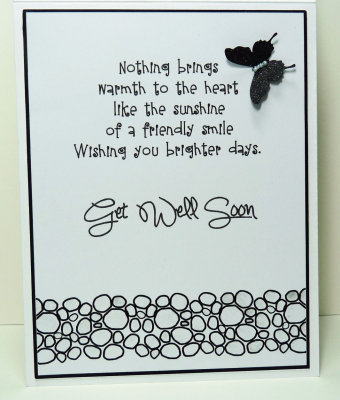 Nothing brings
warmth to the heart
like the sunshine
of a friendly smile
Wishing you brighter days.
Get Well Soon